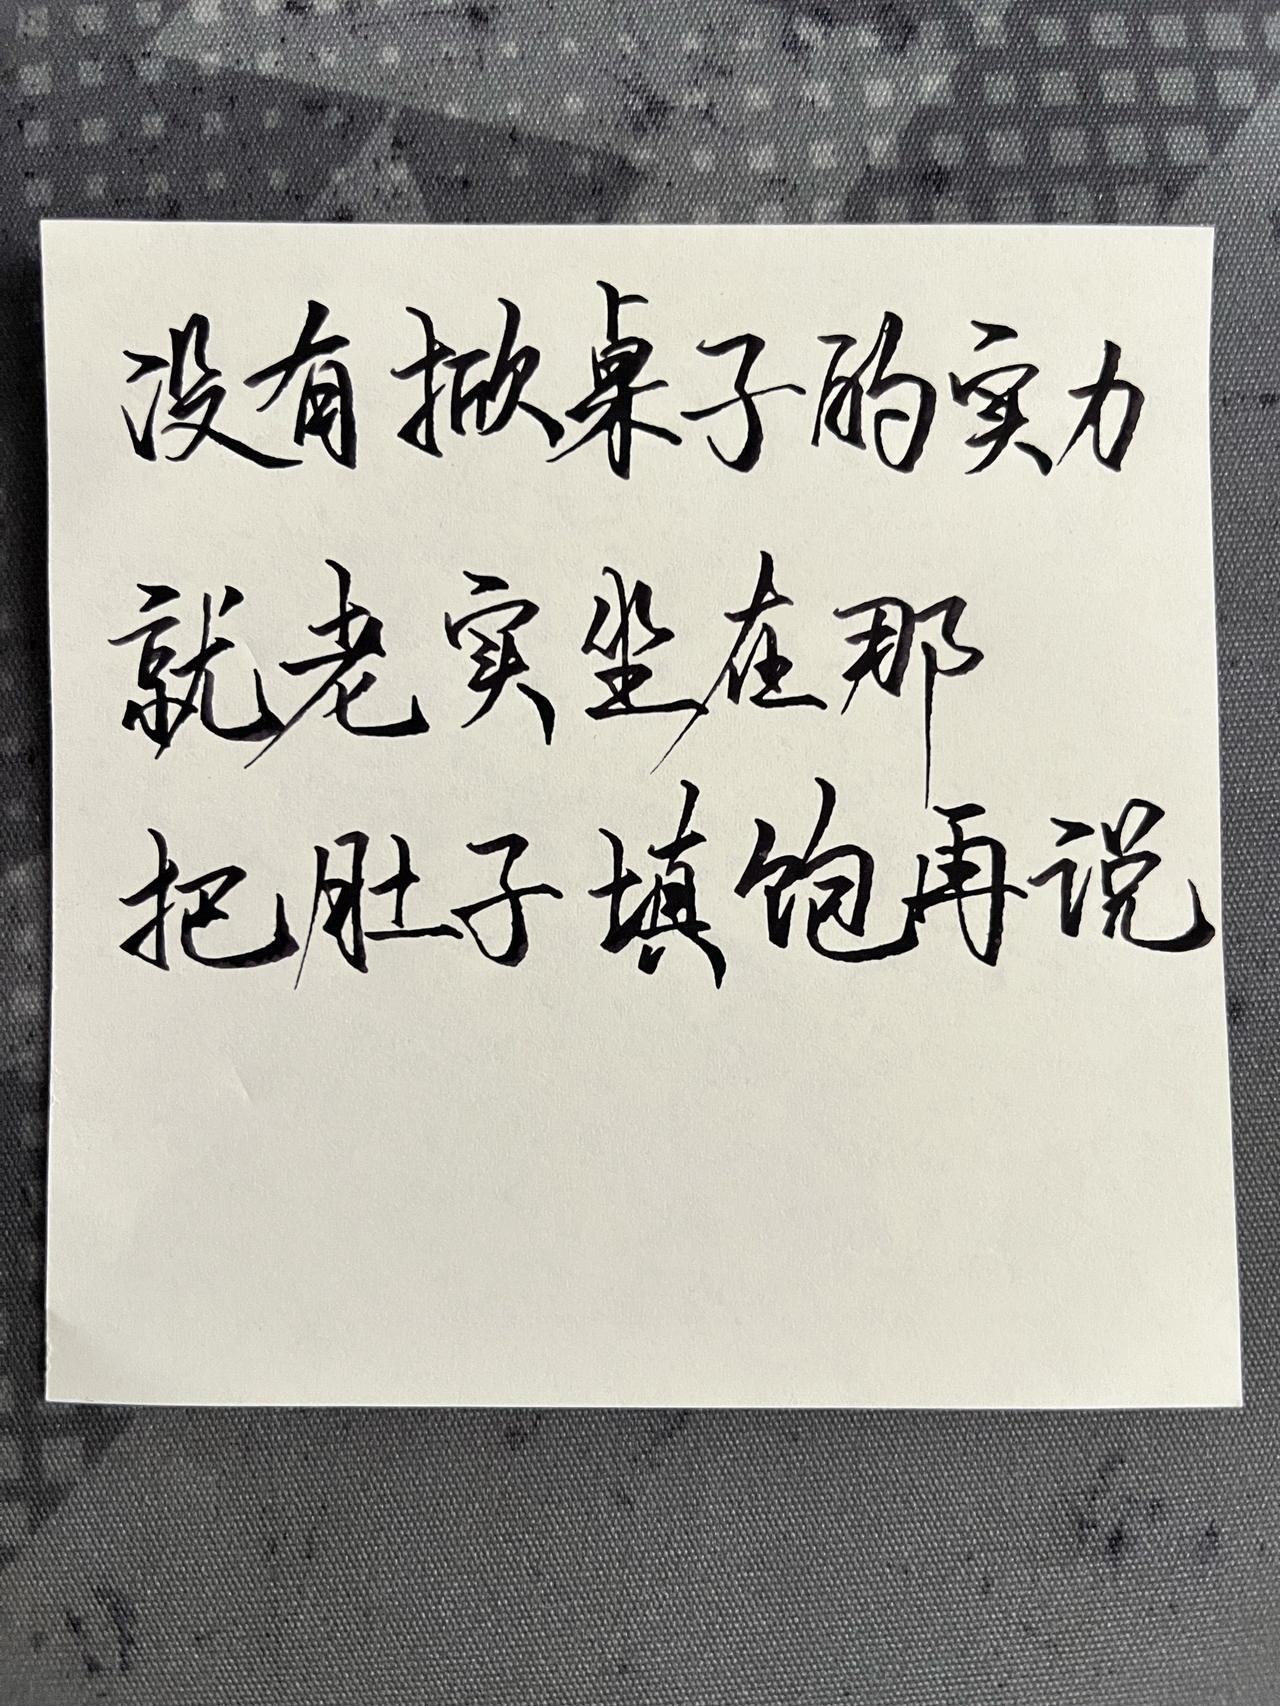 没有掀桌子的实力
就老实坐在那
把肚子填饱再说